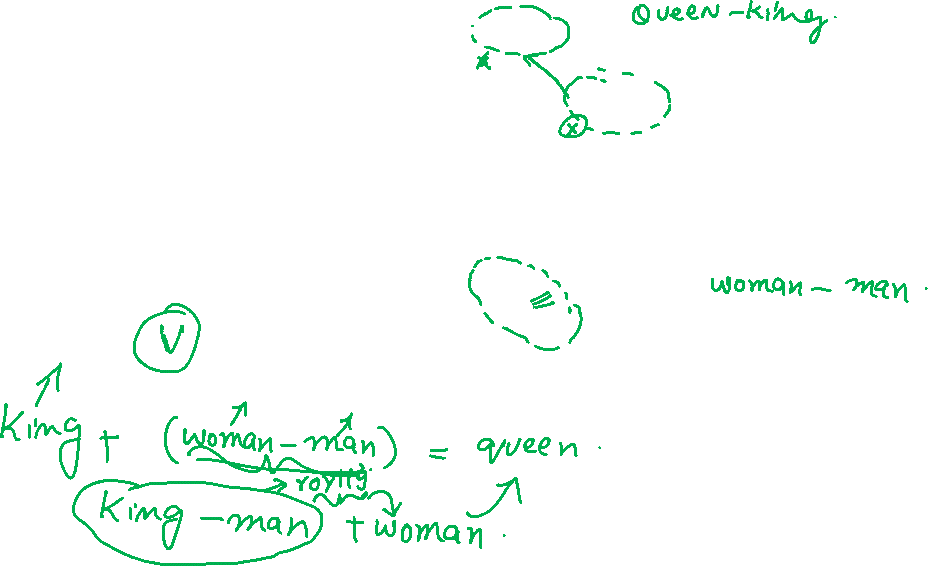 Queen - King.
x
x
woman - man.
V
King + (woman - man) = queen.
roylty
King - man + woman.